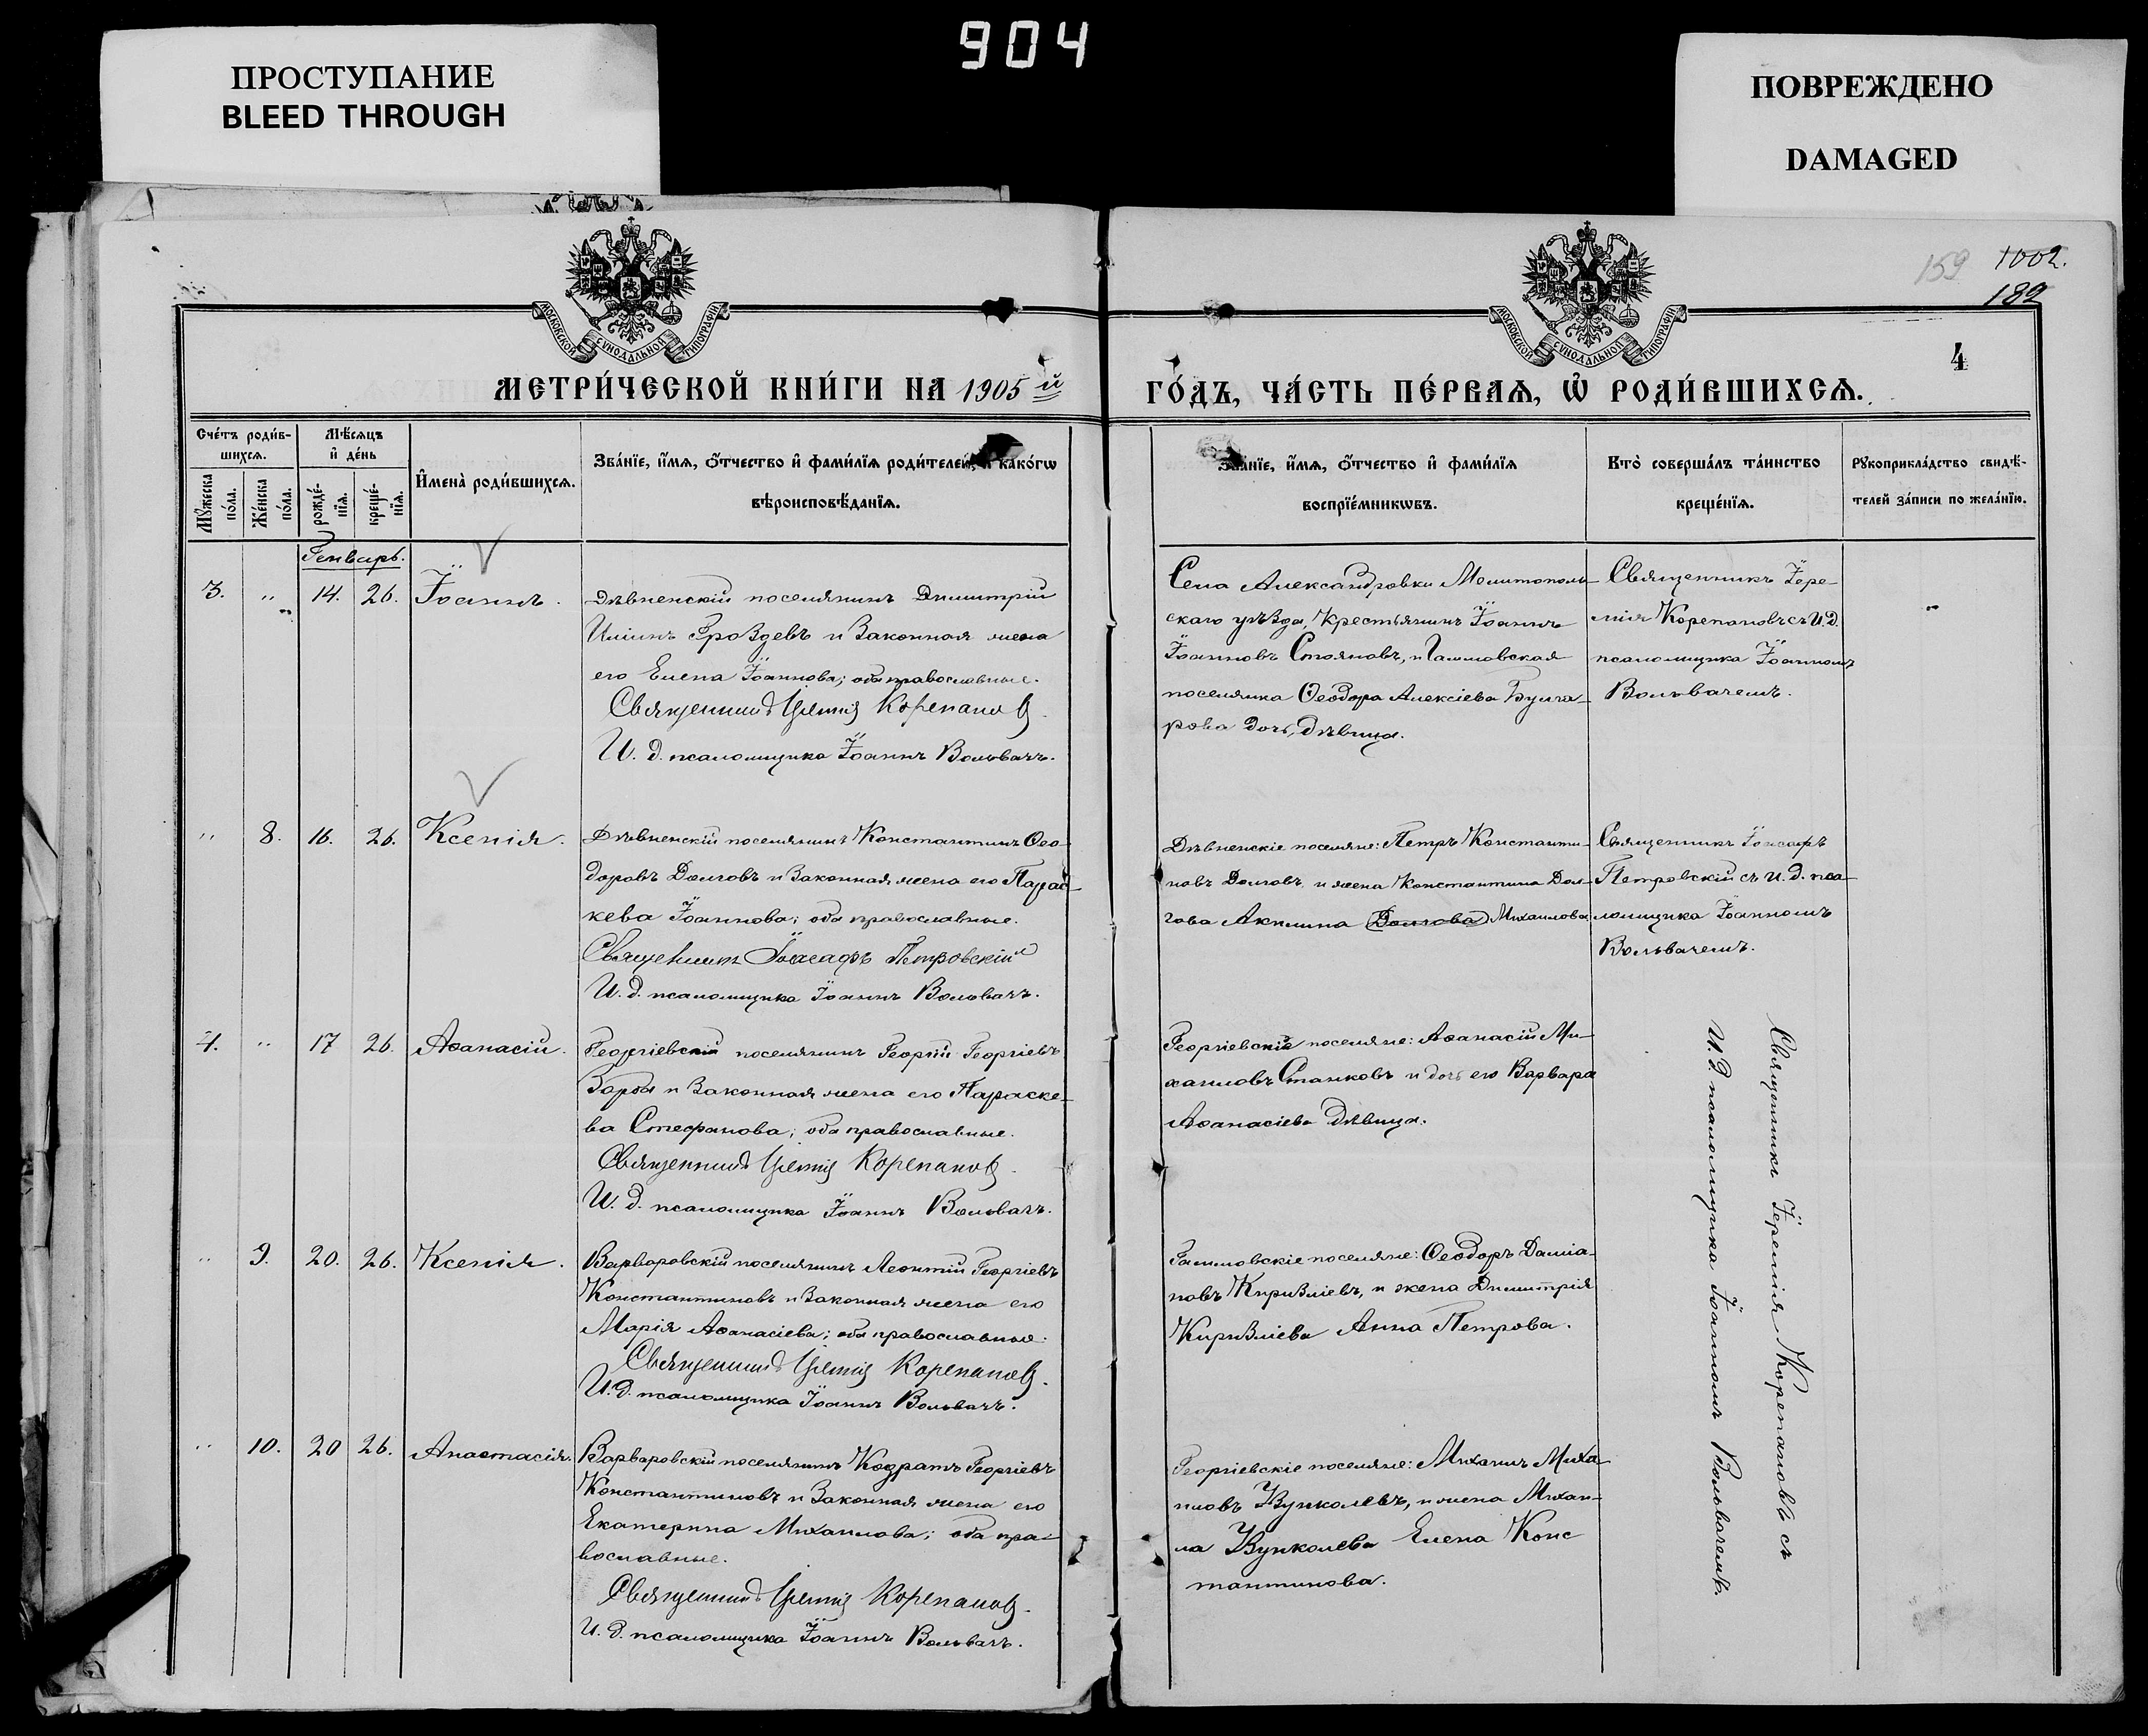 904
ПРОСТУПАНИЕ
BLEED THROUGH
ПОВРЕЖДЕНО
DAMAGED
МОСКОВСКОЙ СУНОДАЛЬНОЙ ТИПОГРАФІИ
МОСКОВСКОЙ СУНОДАЛЬНОЙ ТИПОГРАФІИ
159 1002.
182
4
МЕТРИ́ЧЕСКОЙ КНИ́ГИ НА 1905й
ГО́ДЪ, ЧА́СТЬ ПЕ́РВАѦ, Ѡ҆ РОДИ́ВШИХСѦ.
Сче́тъ роди́в-
шихсѧ.
Мѣ́сѧцъ
и҆ де́нь
Мꙋ́жеска
по́ла.
Же́нска
по́ла.
рожде́-
нїѧ.
креще́-
нїѧ.
И҆мена̀ роди́вшихсѧ.
Зва́нїе, и҆́мѧ, ѻ҆́тчество и҆ фами́лїѧ роди́телей, и҆ како́гѡ
вѣроисповѣ́данїѧ.
Зва́нїе, и҆́мѧ, ѻ҆́тчество и҆ фами́лїѧ
воспрїе́мникѡвъ.
Кто̀ соверша́лъ та́инство
креще́нїѧ.
Рꙋкоприкла́дство свидѣ́-
телей за́писи по жела́нїю.
Генварь.
3. " 14. 26. Іоаннъ.
Дѣвненскій поселянинъ Димитрій
Иліинъ Гроздевъ и законная жена
его Елена Іоаннова; оба православные.
Священникъ Іеремія Корепановъ.
И. д. псаломщика Іоаннъ Вольвачъ.
Села Александровки Мелитополь-
скаго уѣзда, крестьянинъ Іоаннъ
Іоанновъ Стояновъ, и Гаммовская
поселянка Ѳеодора Алексіева Булга-
рова дочь, дѣвица.
Священникъ Іере-
мія Корепановъ съ И. д.
псаломщика Іоанномъ
Вольвачемъ.
" 8. 16. 26. Ксенія.
Дѣвненскій поселянинъ Константинъ Ѳео-
доровъ Долговъ и законная жена его Парас-
кева Іоаннова; оба православные.
Священникъ Іоасафъ Петровскій
И. д. псаломщика Іоаннъ Вольвачъ.
Дѣвненскіе поселяне: Петръ Константи-
новъ Долговъ, и жена Константина Дол-
гова Акилина (Долгова) Михаилова
Священникъ Іоасафъ
Петровскій съ и. д. пса-
ломщика Іоанномъ
Вольвачемъ.
4. " 17 26. Аѳанасій.
Георгіевскій поселянинъ Георгій Георгіевъ
Барбя и законная жена его Параске-
ва Стефанова; оба православные.
Священникъ Іеремія Корепановъ.
И. д. псаломщика Іоаннъ Вольвачъ.
Георгіевскіе поселяне: Аѳанасій Ми-
хаиловъ Станковъ и дочь его Варвара
Аѳанасіева дѣвица.
Священникъ Іеремія Корепановъ съ
И. д. псаломщика Іоанномъ Вольвачемъ.
" 9. 20. 26. Ксенія.
Варваровскій поселянинъ Леонтій Георгіевъ
Константиновъ и законная жена его
Марія Аѳанасіева; оба православные.
Священникъ Іеремія Корепановъ.
И. д. псаломщика Іоаннъ Вольвачъ.
Гаммовскіе поселяне: Ѳеодоръ Даміа-
новъ Киризліевъ, и жена Димитрія
Киризліева Анна Петрова.
" 10. 20 26. Анастасія.
Варваровскій поселянинъ Кодратъ Георгіевъ
Константиновъ и законная жена его
Екатерина Михаилова; оба пра-
вославные.
Священникъ Іеремія Корепановъ.
И. д. псаломщика Іоаннъ Вольвачъ.
Георгіевскіе поселяне: Михаилъ Миха-
иловъ Жунколевъ, и жена Михаи-
ла Жунколева Елена Конс
тантинова.